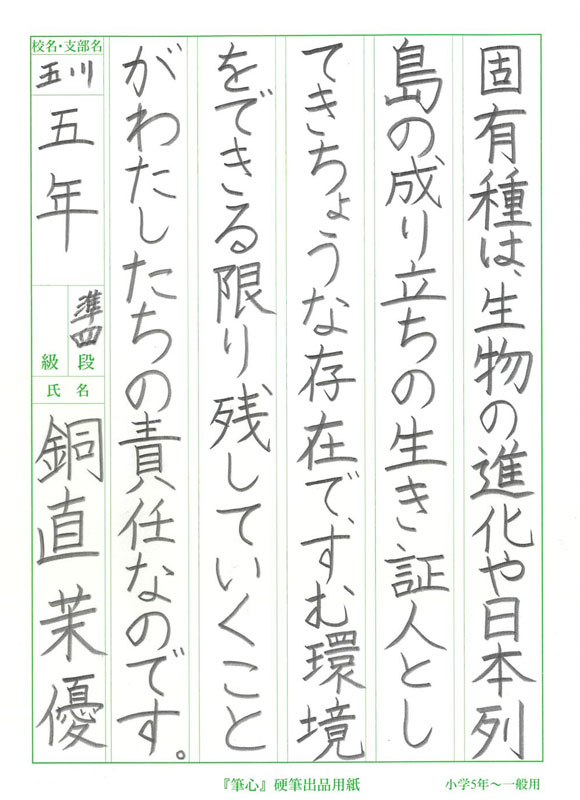 固有種は、生物の進化や日本列
島の成り立ちの生き証人とし
てきちょうな存在で、すむ環境
をできる限り残していくこと
がわたしたちの責任なのです。
校名・支部名
五川
五年
準四
段
級
氏名
銅直茉優
『筆心』硬筆出品用紙
小学5年〜一般用